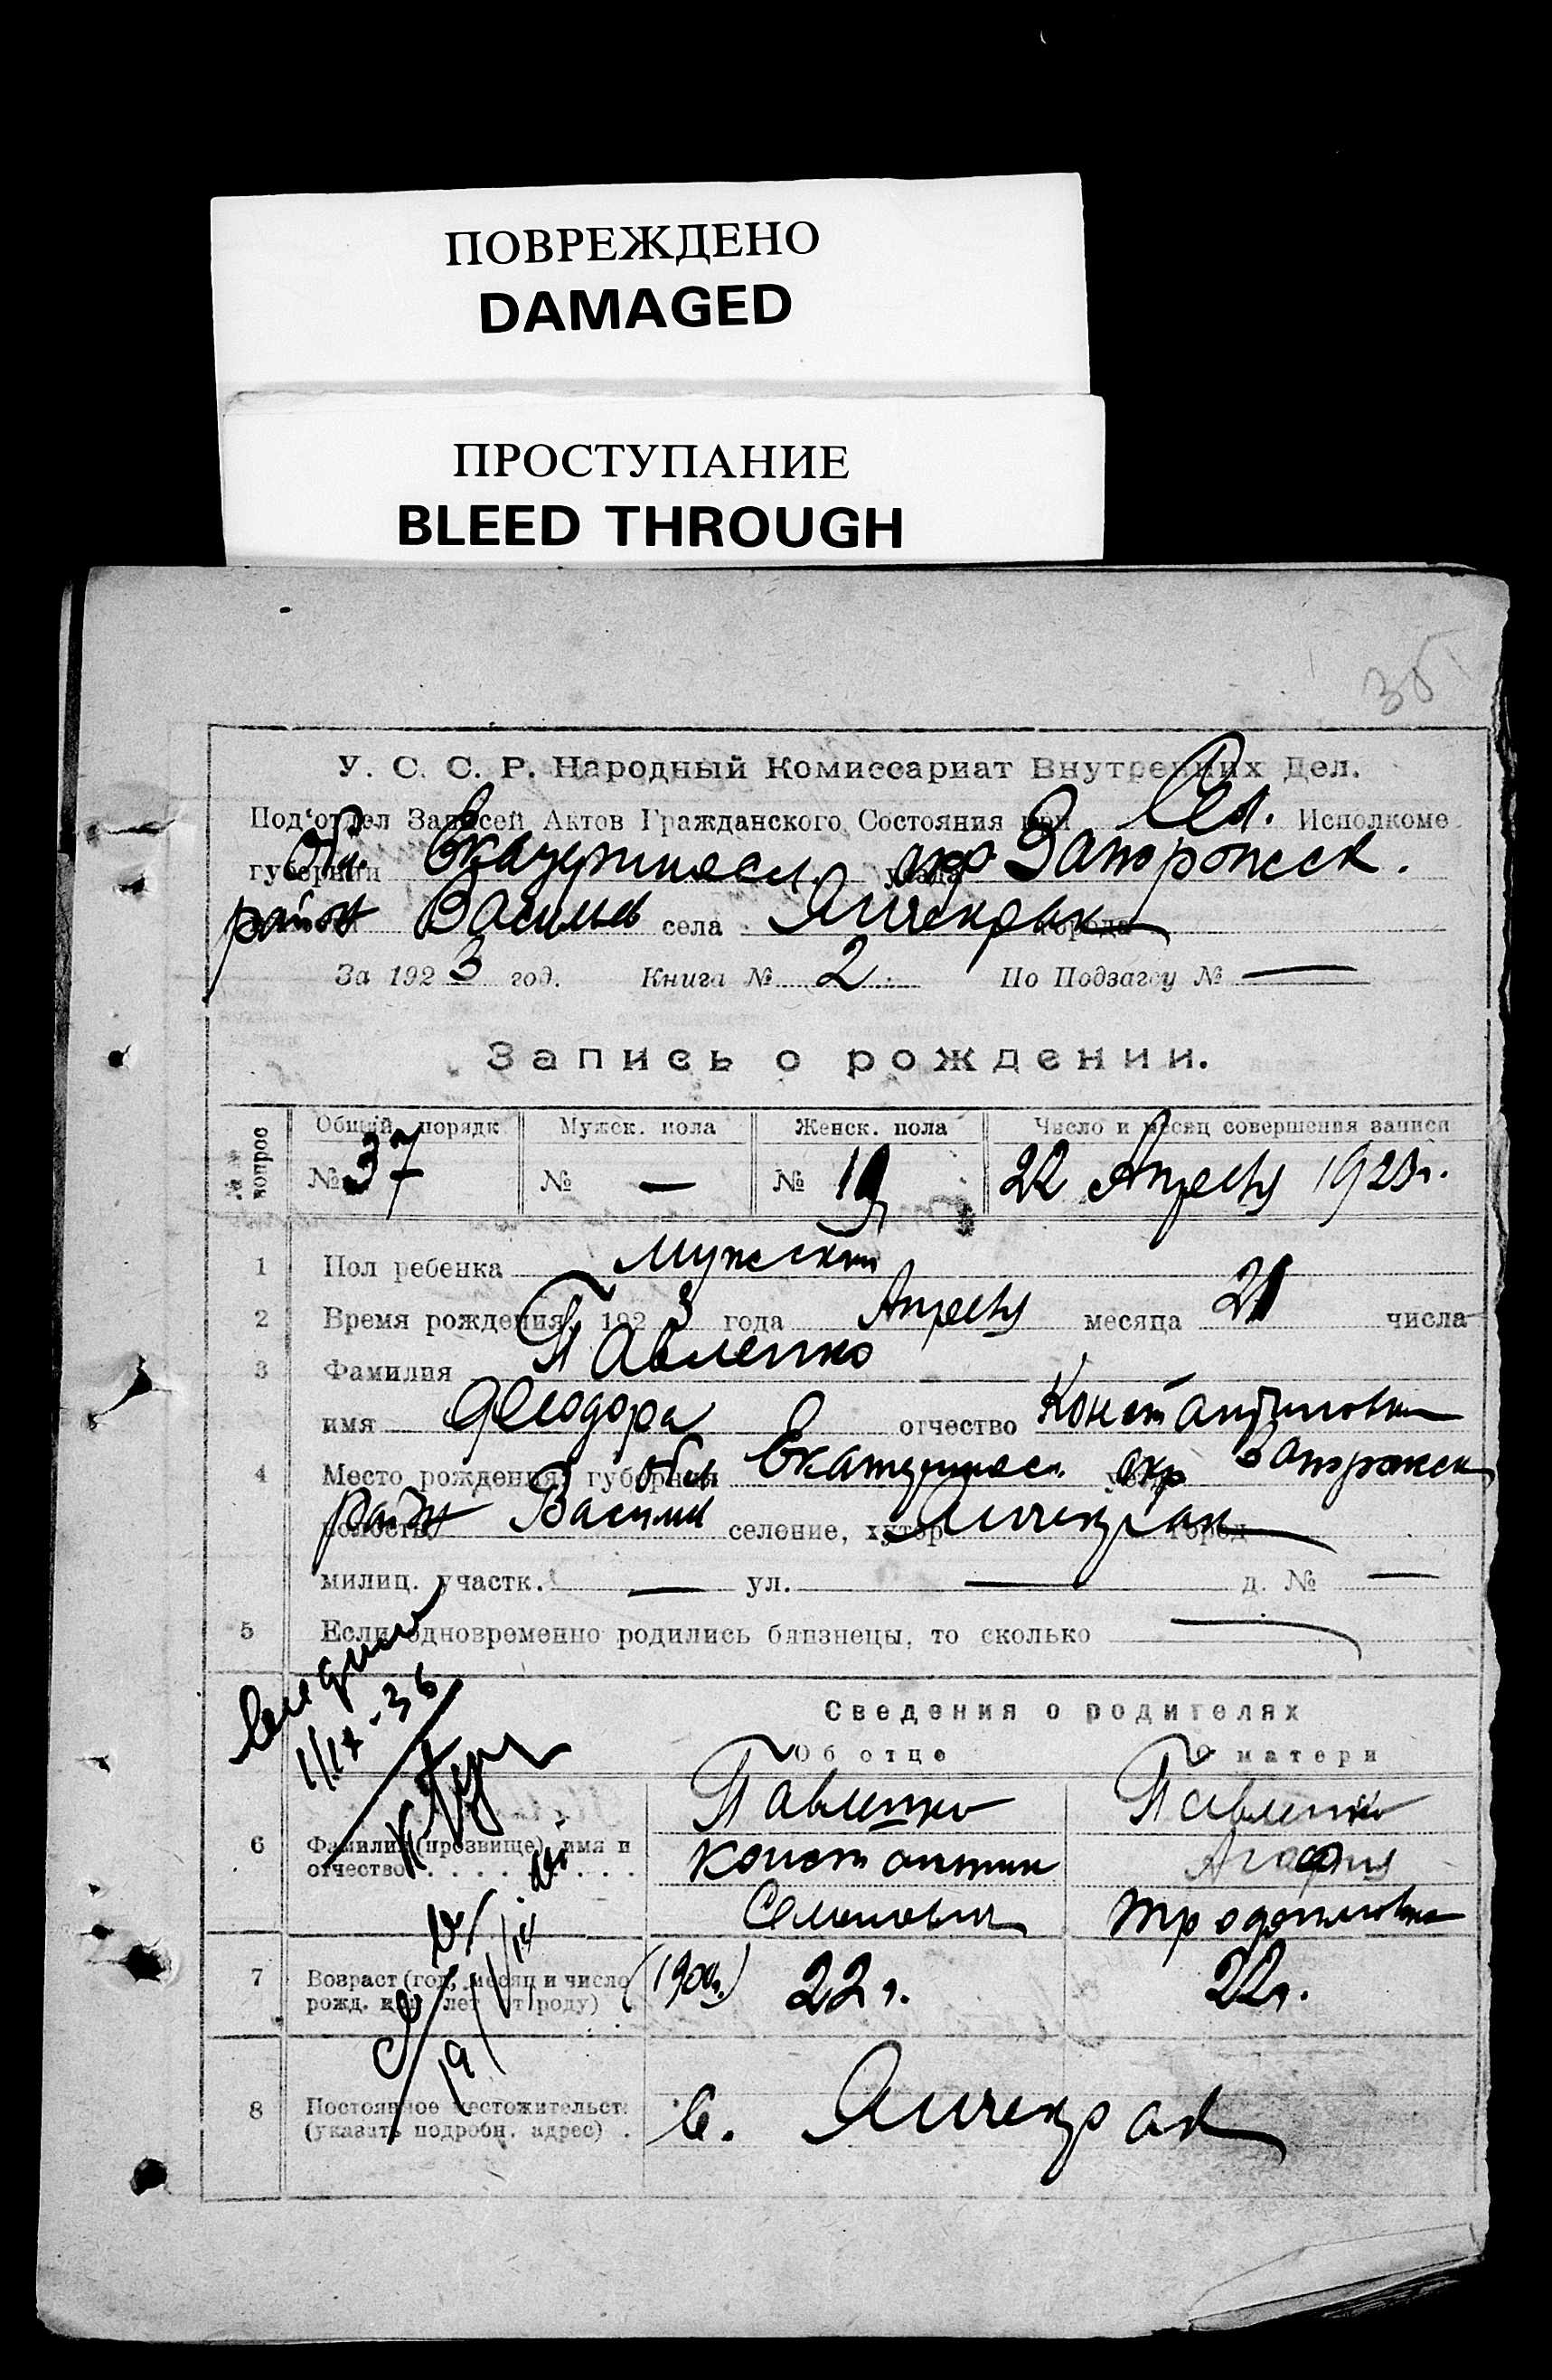 ПОВРЕЖДЕНО
DAMAGED
ПРОСТУПАНИЕ
BLEED THROUGH
35
У. С. С. Р. Народный Комиссариат Внутренних Дел.
Под'отдел Записей Актов Гражданского Состояния при Сел. Исполкоме
губернии Обл. Екатериносл. уезда окр Запорожск.
район Васильев села Янчекрак города
За 1923 год. Книга № 2. По Подзагсу № —
Запись о рождении.
№№ вопрос Общий порядк. Мужск. пола Женск. пола Число и месяц совершения записи
№ 37 № — № 19 22 Апреля 1923 г.
1 Пол ребенка Мужской
2 Время рождения 1923 года Апреля месяца 21 числа
3 Фамилия Павленко
имя Феодора отчество Константиновна
4 Место рождения: губернии обл Екатериносл. уезд окр Запорожск
волость район Васильев селение, хутор Янчекрак город
милиц. участк. — ул. — д. № —
5 Если одновременно родились близнецы, то сколько —
1/IX-36
Сведения о родителях
Об отце О матери
6 Фамилия (прозвище), имя и отчество Павленко Павленко
Константин Агафия
Семенович Трофимовна
7 Возраст (год, месяц и число рожд. или лет от роду) (1900г.) 22 г. 22 г.
8 Постоянное местожительст. (указать подробн. адрес) С. Янчекрак